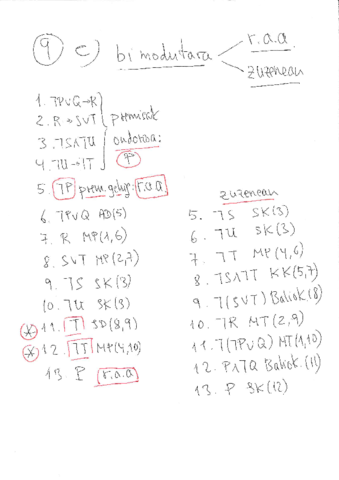 9 c) bi modutara
r.a.a.
zuzenean
1. ⅂P∨Q→R
2. R→S∨T
3. ⅂S∧⅂U
4. ⅂U→⅂T
premisak
ondorioa:
P
5. ⅂P prem. gehig: r.a.a
6. ⅂P∨Q AD(5)
7. R MP(1,6)
8. S∨T MP(2,7)
9. ⅂S SK(3)
10. ⅂U SK(3)
* 11. T SD(8,9)
* 12. ⅂T MP(4,10)
13. P r.a.a
zuzenean
5. ⅂S SK(3)
6. ⅂U SK(3)
7. ⅂T MP(4,6)
8. ⅂S∧⅂T KK(5,7)
9. ⅂(S∨T) Baliok(8)
10. ⅂R MT(2,9)
11. ⅂(⅂P∨Q) MT(1,10)
12. P∧⅂Q Baliok.(11)
13. P SK(12)